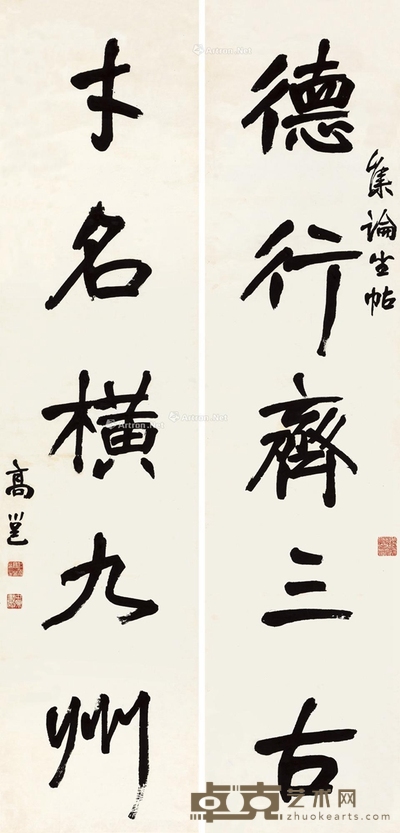 德行齊三古
集論坐帖
才名橫九州
高邕
Artron.Net
卓克艺术网
zhuokearts.com